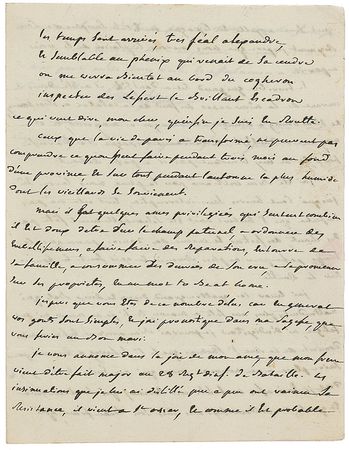 les temps sont arrivés, très féal alexandre,
et semblable au phénix qui renait de sa cendre
on me verra bientot au bord du cogheron
inspecter des le bouillant Escadron
ce qui veut dire mon cher, qu'enfin je suis en Route.
Ceux que la vie de paris a transformé ne peuvent pas
comprendre ce qu'on peut faire pendant trois mois au fond
d'une province et surtout pendant l'automne la plus humide
dont les vieillards se souviennent.
mais il est quelques ames privilégiées qui sentent combien
il est doux d'etre sur le champ paternel, d'ordonner des
Embellissemens, de faire faire des Reparations, Entouré de
sa famille, de consommer des denrées de son cru et se promener
sur ses propriétés, en un mot to Beat home.
j'espère que vous Etes de ce nombre d'élus car en general
vos gouts sont simples, et j'ai pronostiqué dans ma sagesse, que
vous feriez un Bon mari.
je vous annonce dans la joie de mon ame que mon frere
vient d'etre fait major au 28 Regt d'inf. de Bataille. les
insinuations que je lui ai distillé peu a peu ont vaincu sa
Resistance, il vient a St omer, et comme il est probable